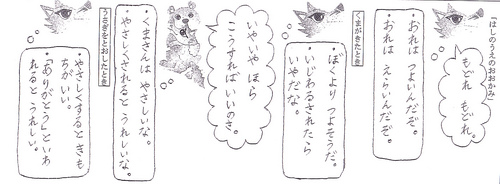 はしのうえのおおかみ
もどれ もどれ。
・おれは つよいんだぞ。
・おれは えらいんだぞ。
くまがきたとき
・ぼくより つよそうだ。
・いじわるされたら
いやだな。
いやいや ほら
こうすれば いいのさ。
・くまさんは やさしいな。
・やさしくされると うれしいな。
うさぎをとおしたとき
・やさしくすると きも
ちが いい。
・「ありがとう」といわ
れると うれしい。